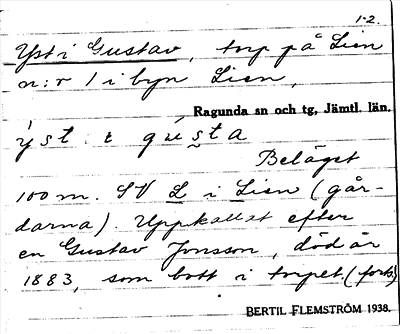 1-2.
Yst i Gustav, torp på Lien
n:r 1 i byn Lien,
Ragunda sn och tg, Jämtl. län.
ýst i gùsta
Beläget
100 m. SV L i Lien (går-
darna). Uppkallat efter
en Gustav Jonsson, död år
1883, som bott i torpet. (forts)
BERTIL FLEMSTRÖM 1938.